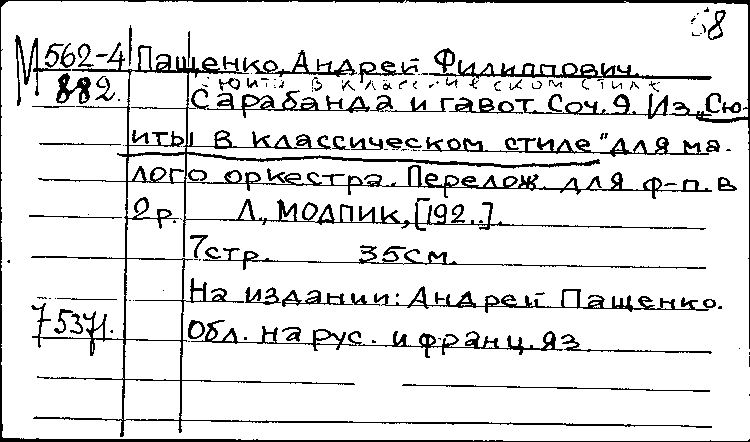 58
М 562-4 Пащенко, Андрей Филиппович.
882. Сюита в классическом стиле
Сарабанда и гавот. Соч. 9. Из „Сю-
иты в классическом стиле" для ма-
лого оркестра. Перелож. для ф-п. в
2 р. Л., МОДПИК, [192..].
7 стр. 35 см.
На издании: Андрей Пащенко.
75371. Обл. на рус. и франц. яз.